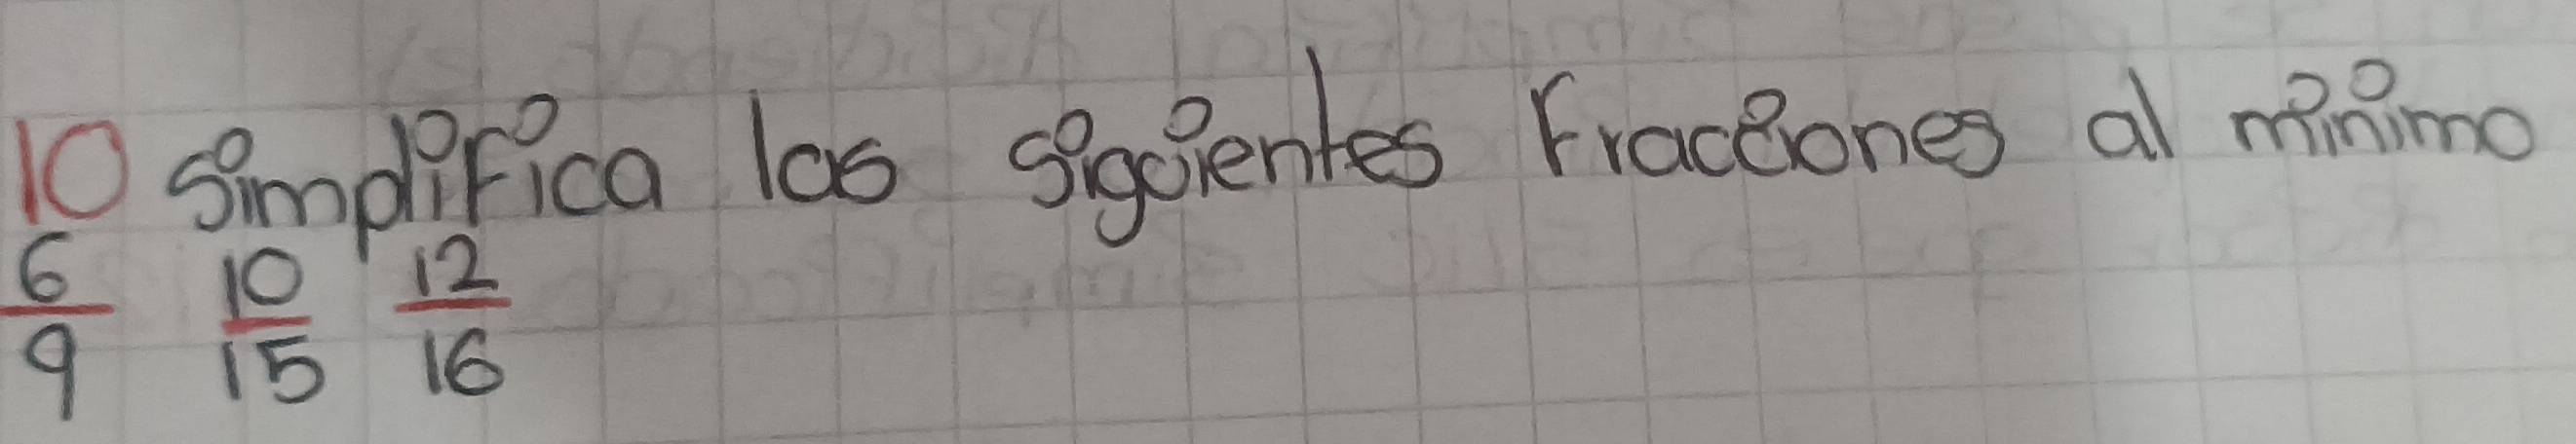 10 Simplifica las siguientes Fracciones al mínimo
6/9 10/15 12/16